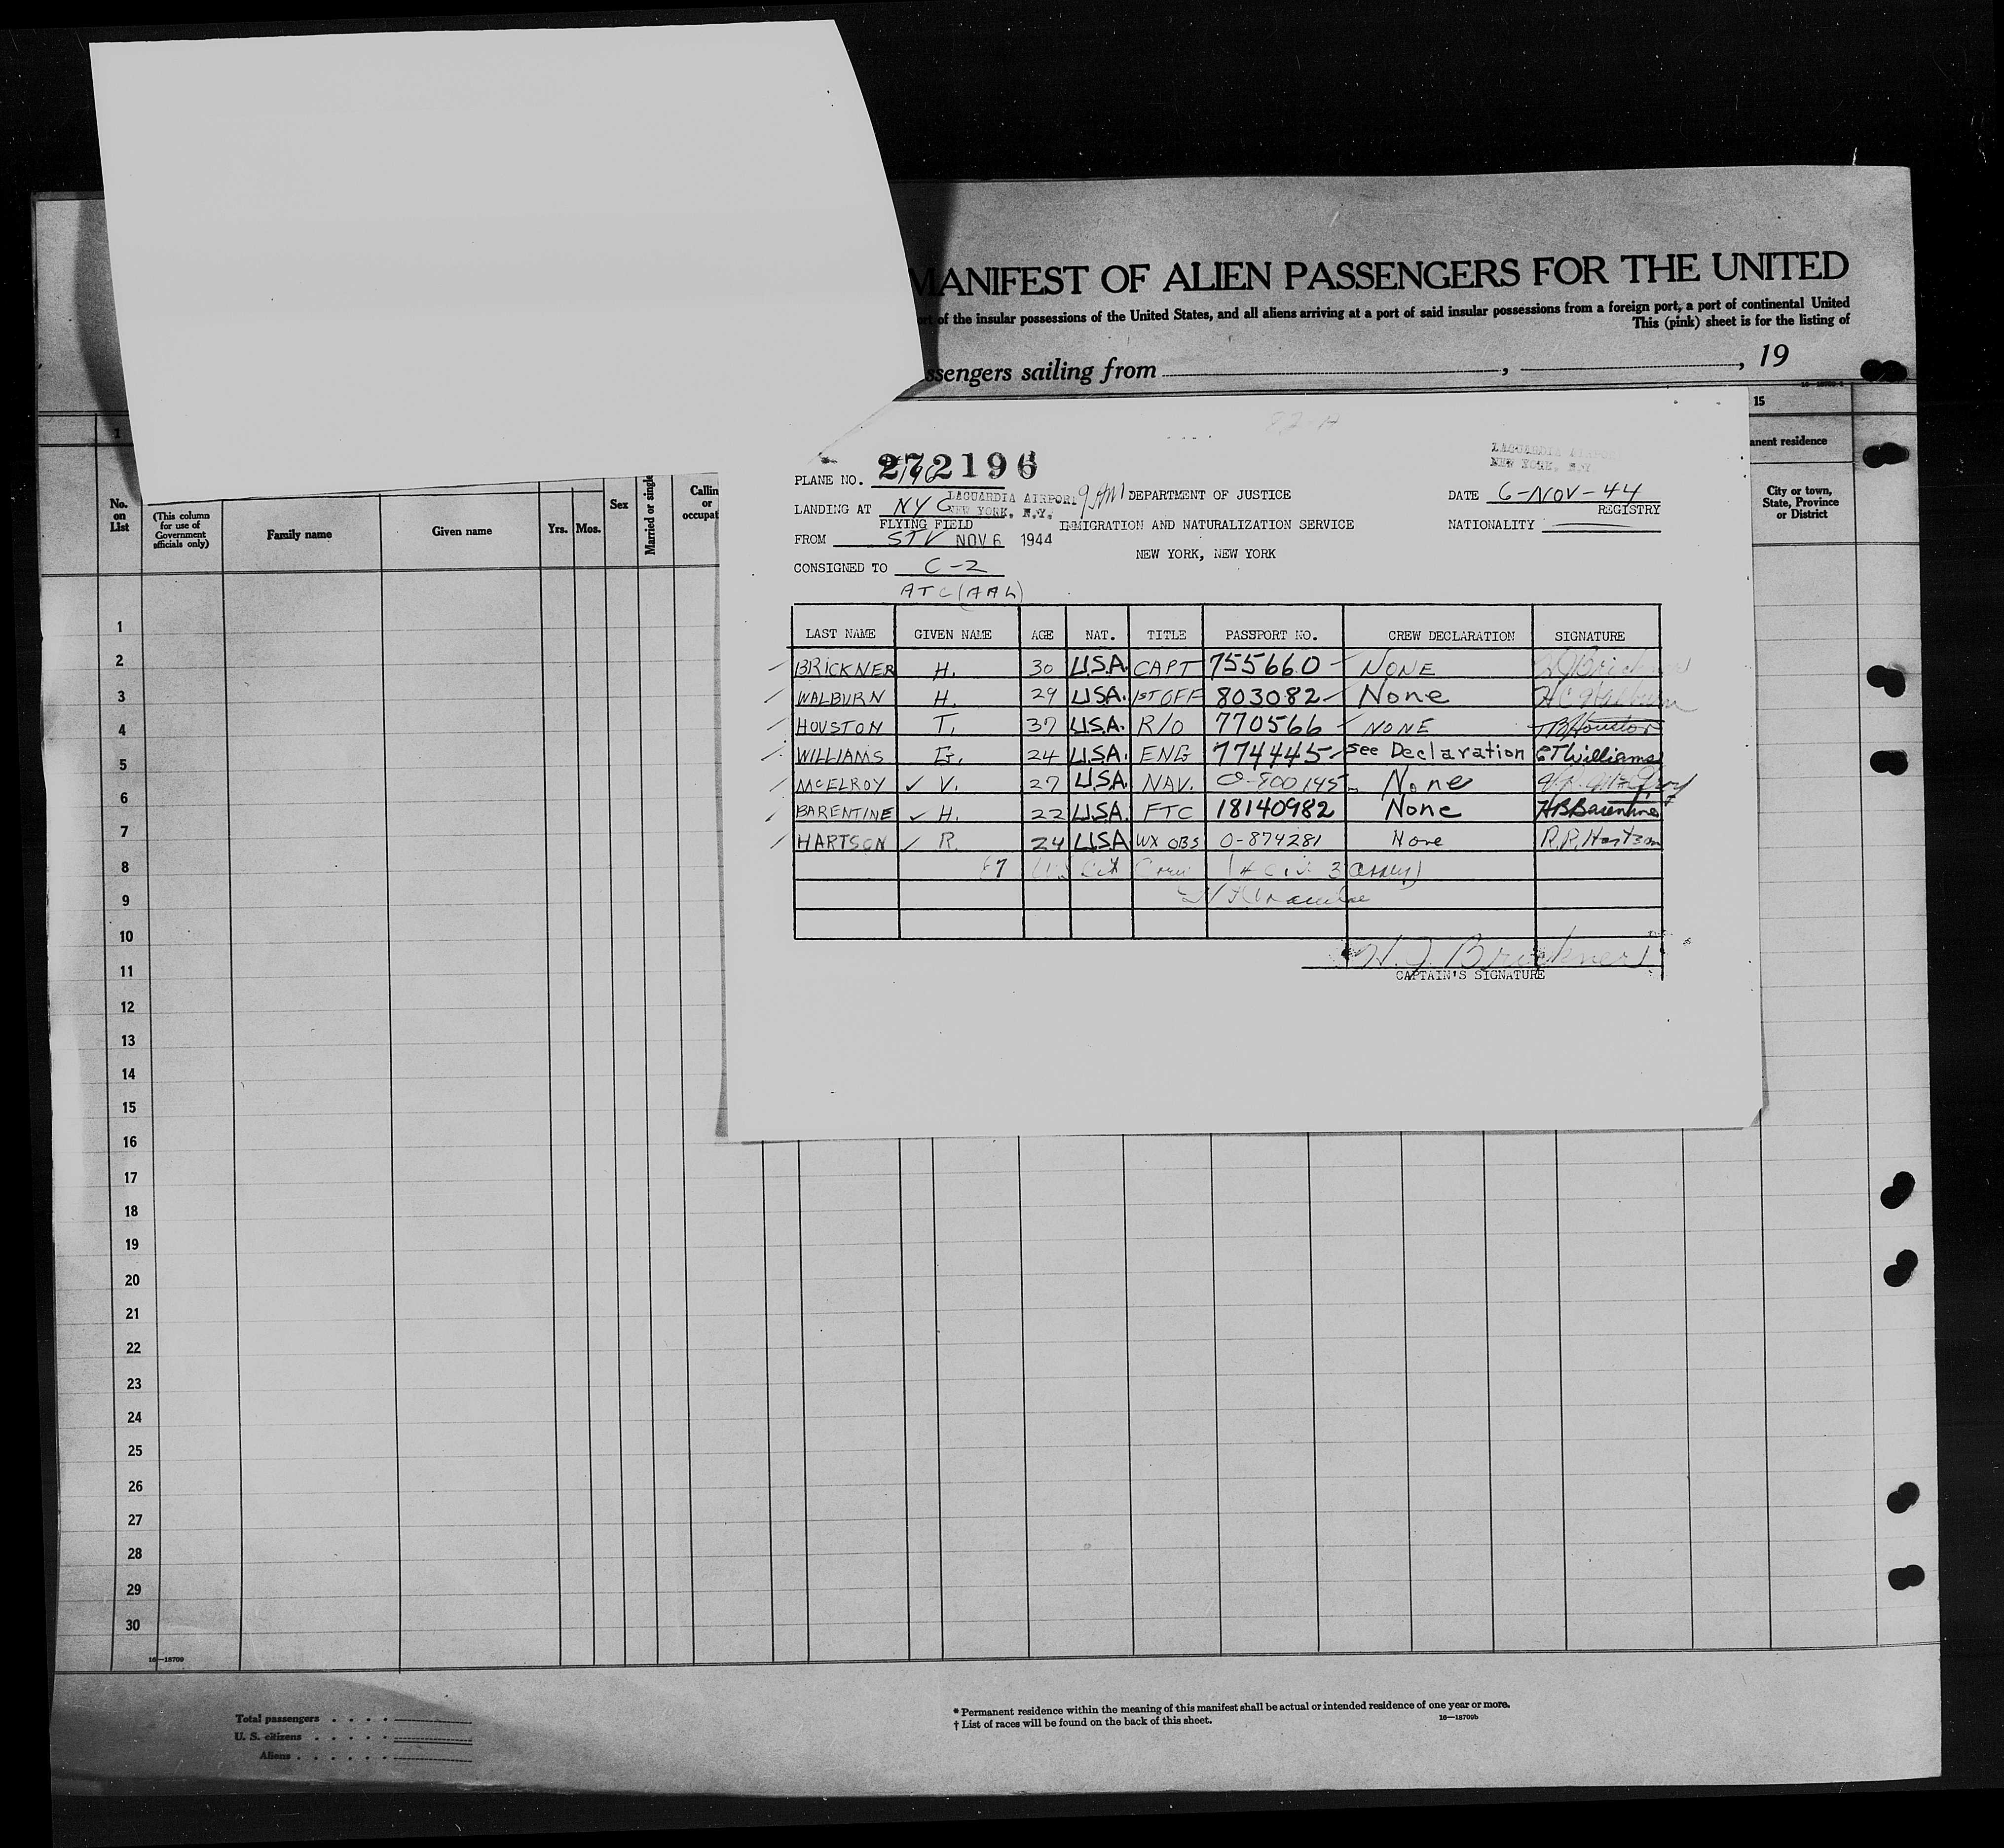 MANIFEST OF ALIEN PASSENGERS FOR THE UNITED
of the insular possessions of the United States, and all aliens arriving at a port of said insular possessions from a foreign port, a port of continental United
This (pink) sheet is for the listing of
ssengers sailing from , , 19
82-A
LAGUARDIA AIRPORT
NEW YORK, N.Y.
PLANE NO. 272196
LANDING AT NYC LAGUARDIA AIRPORT 9 AM DEPARTMENT OF JUSTICE DATE 6-NOV-44
NEW YORK, N.Y.
FLYING FIELD IMMIGRATION AND NATURALIZATION SERVICE NATIONALITY REGISTRY
FROM STV NOV 6 1944
NEW YORK, NEW YORK
CONSIGNED TO C-2
ATC (AAL)
LAST NAME GIVEN NAME AGE NAT. TITLE PASSPORT NO. CREW DECLARATION SIGNATURE
BRICKNER H. 30 U.S.A. CAPT 755660 NONE
WALBURN H. 29 U.S.A. 1ST OFF 803082 None H C Walburn
HOUSTON T. 37 U.S.A. R/O 770566 NONE T B Houston
WILLIAMS G. 24 U.S.A. ENG 774445 See Declaration G T Williams
McELROY V. 27 U.S.A. NAV. O-800145 None
BARENTINE H. 22 U.S.A. FTC 18140982 None H B Barentine
HARTSON R. 24 USA WX OBS O-874281 None R. R. Hartson
7 US Cit Crew (4 civ. 3 army)
H. J. Brickner
CAPTAIN'S SIGNATURE
1 15
anent residence
No. on List
(This column for use of Government officials only)
Family name
Given name
Yrs. Mos.
Sex
Married or single
Callin
or
occupat
City or town,
State, Province
or District
1
2
3
4
5
6
7
8
9
10
11
12
13
14
15
16
17
18
19
20
21
22
23
24
25
26
27
28
29
30
16—18709
Total passengers . . . .
U. S. citizens . . . . .
Aliens . . . . . .
* Permanent residence within the meaning of this manifest shall be actual or intended residence of one year or more.
† List of races will be found on the back of this sheet.
16—18709b